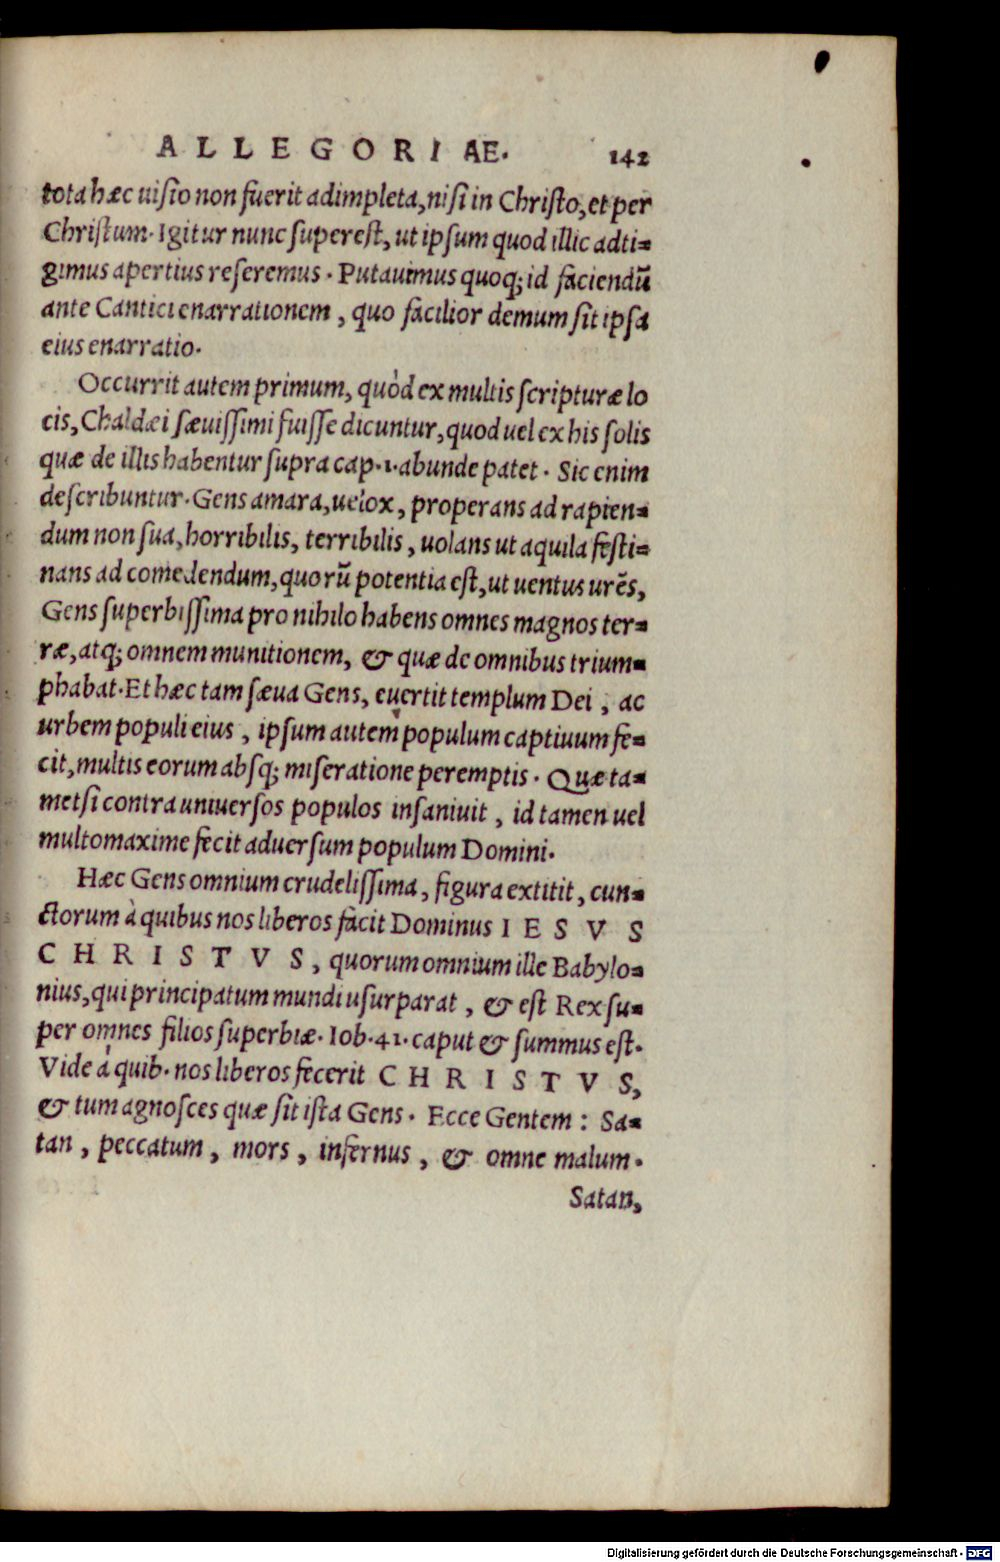 ALLEGORIAE. 142
tota hæc uisio non fuerit adimpleta, nisi in Christo, et per
Christum. Igitur nunc superest, ut ipsum quod illic adti=
gimus apertius reseremus. Putauimus quoq; id faciendũ
ante Cantici enarrationem, quo facilior demum sit ipsa
eius enarratio.
Occurrit autem primum, quòd ex multis scripturæ lo
cis, Chaldæi sæuissimi fuisse dicuntur, quod uel ex his solis
quæ de illis habentur supra cap. 1. abunde patet. Sic enim
describuntur. Gens amara, uelox, properans ad rapien=
dum non sua, horribilis, terribilis, uolans ut aquila festi=
nans ad comedendum, quorũ potentia est, ut uentus urẽs,
Gens superbissima pro nihilo habens omnes magnos ter=
ræ, atq; omnem munitionem, & quæ de omnibus trium=
phabat. Et hæc tam sæua Gens, euertit templum Dei, ac
urbem populi eius, ipsum autem populum captiuum fe=
cit, multis eorum absq; miseratione peremptis. Quæ ta=
metsi contra uniuersos populos insaniuit, id tamen uel
multomaxime fecit aduersum populum Domini.
Hæc Gens omnium crudelissima, figura extitit, cun=
ctorum à quibus nos liberos facit Dominus IESVS
CHRISTVS, quorum omnium ille Babylo=
nius, qui principatum mundi usurparat, & est Rex su=
per omnes filios superbiæ. Iob. 41. caput & summus est.
Vide à quib. nos liberos fecerit CHRISTVS,
& tum agnosces quæ sit ista Gens. Ecce Gentem: Sa=
tan, peccatum, mors, infernus, & omne malum.
Satan,
Digitalisierung gefördert durch die Deutsche Forschungsgemeinschaft - DFG